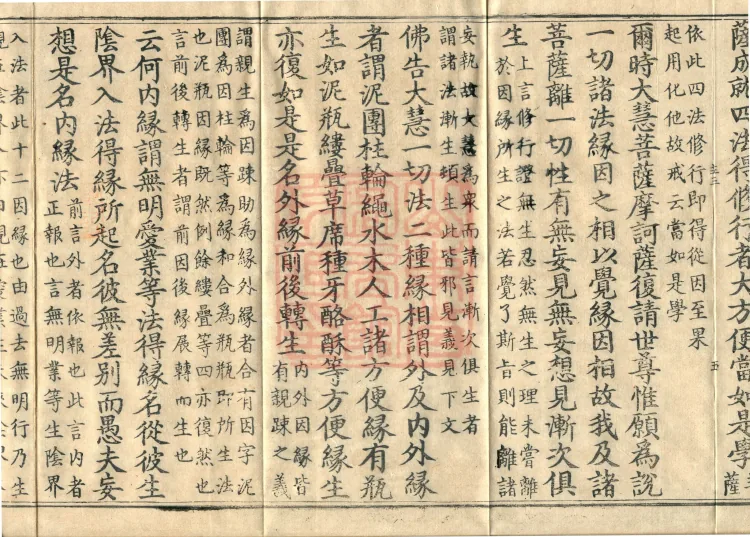 薩成就四法得修行者大方便當如是學
依此四法修行即得從因至果
起用化他故戒云當如是學
爾時大慧菩薩摩訶薩復請世尊惟願為說
一切諸法緣因之相以覺緣因相故我及諸
菩薩離一切性有無妄見無妄想見漸次俱
生
上言修行證無生忍然無生之理未嘗離
於因緣所生之法若覺了斯旨則能離諸
妄執故大慧為眾而請言漸次俱生者
謂諸法漸生頓生此皆邪見義見下文
佛告大慧一切法二種緣相謂外及內外緣
者謂泥團柱輪繩水木人工諸方便緣有瓶
生如泥瓶縷疊草席種牙酪酥等方便緣生
亦復如是是名外緣前後轉生
內外因緣皆
有親踈之義
謂親生為因踈助為緣外緣者合有因字泥
團為因柱輪等為緣和合為瓶瓶即所生法
也泥瓶因緣既然例餘縷疊等四亦復然也
言前後轉生者謂前因後緣展轉而生也
云何內緣謂無明愛業等法得緣名從彼生
陰界入法得緣所起名彼無差別而愚夫妄
想是名內緣法
前言外者依報也此言內者
正報也言無明業等生陰界
入法者此十二因緣也由過去無明行乃生